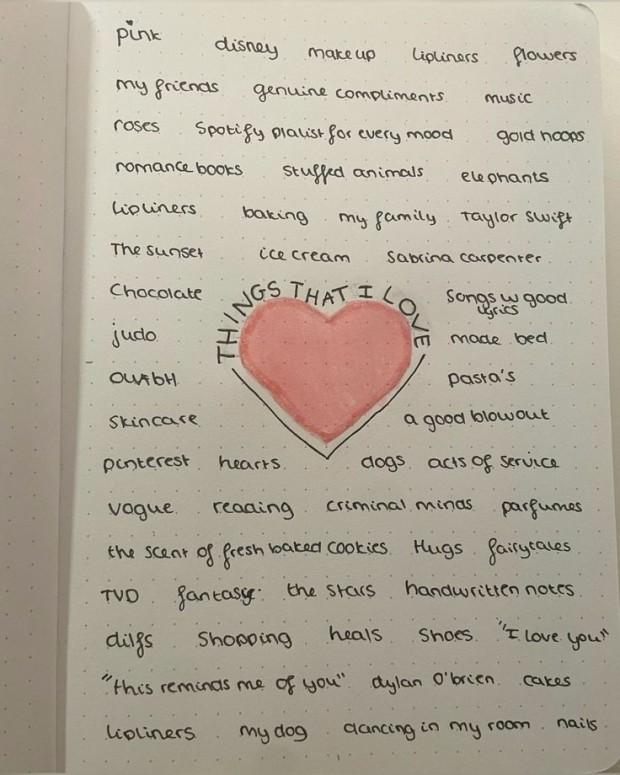 pink disney makeup lipliners flowers
my friends genuine compliments music
roses Spotify plalist for every mood gold hoops
romance books stuffed animals elephants
lipliners baking my family Taylor Swift
The sunset ice cream Sabrina carpenter
Chocolate THINGS THAT I LOVE Songs w good lyrics
judo made bed
OUABH pasta's
Skincare a good blowout
pinterest hearts dogs acts of service
vogue reading criminal minds parfumes
the scent of fresh baked cookies Hugs fairytales
TVD fantasy the stars handwritten notes
dilfs Shopping heals shoes "I love you"
"this reminds me of you" dylan O'brien cakes
lipliners my dog dancing in my room nails